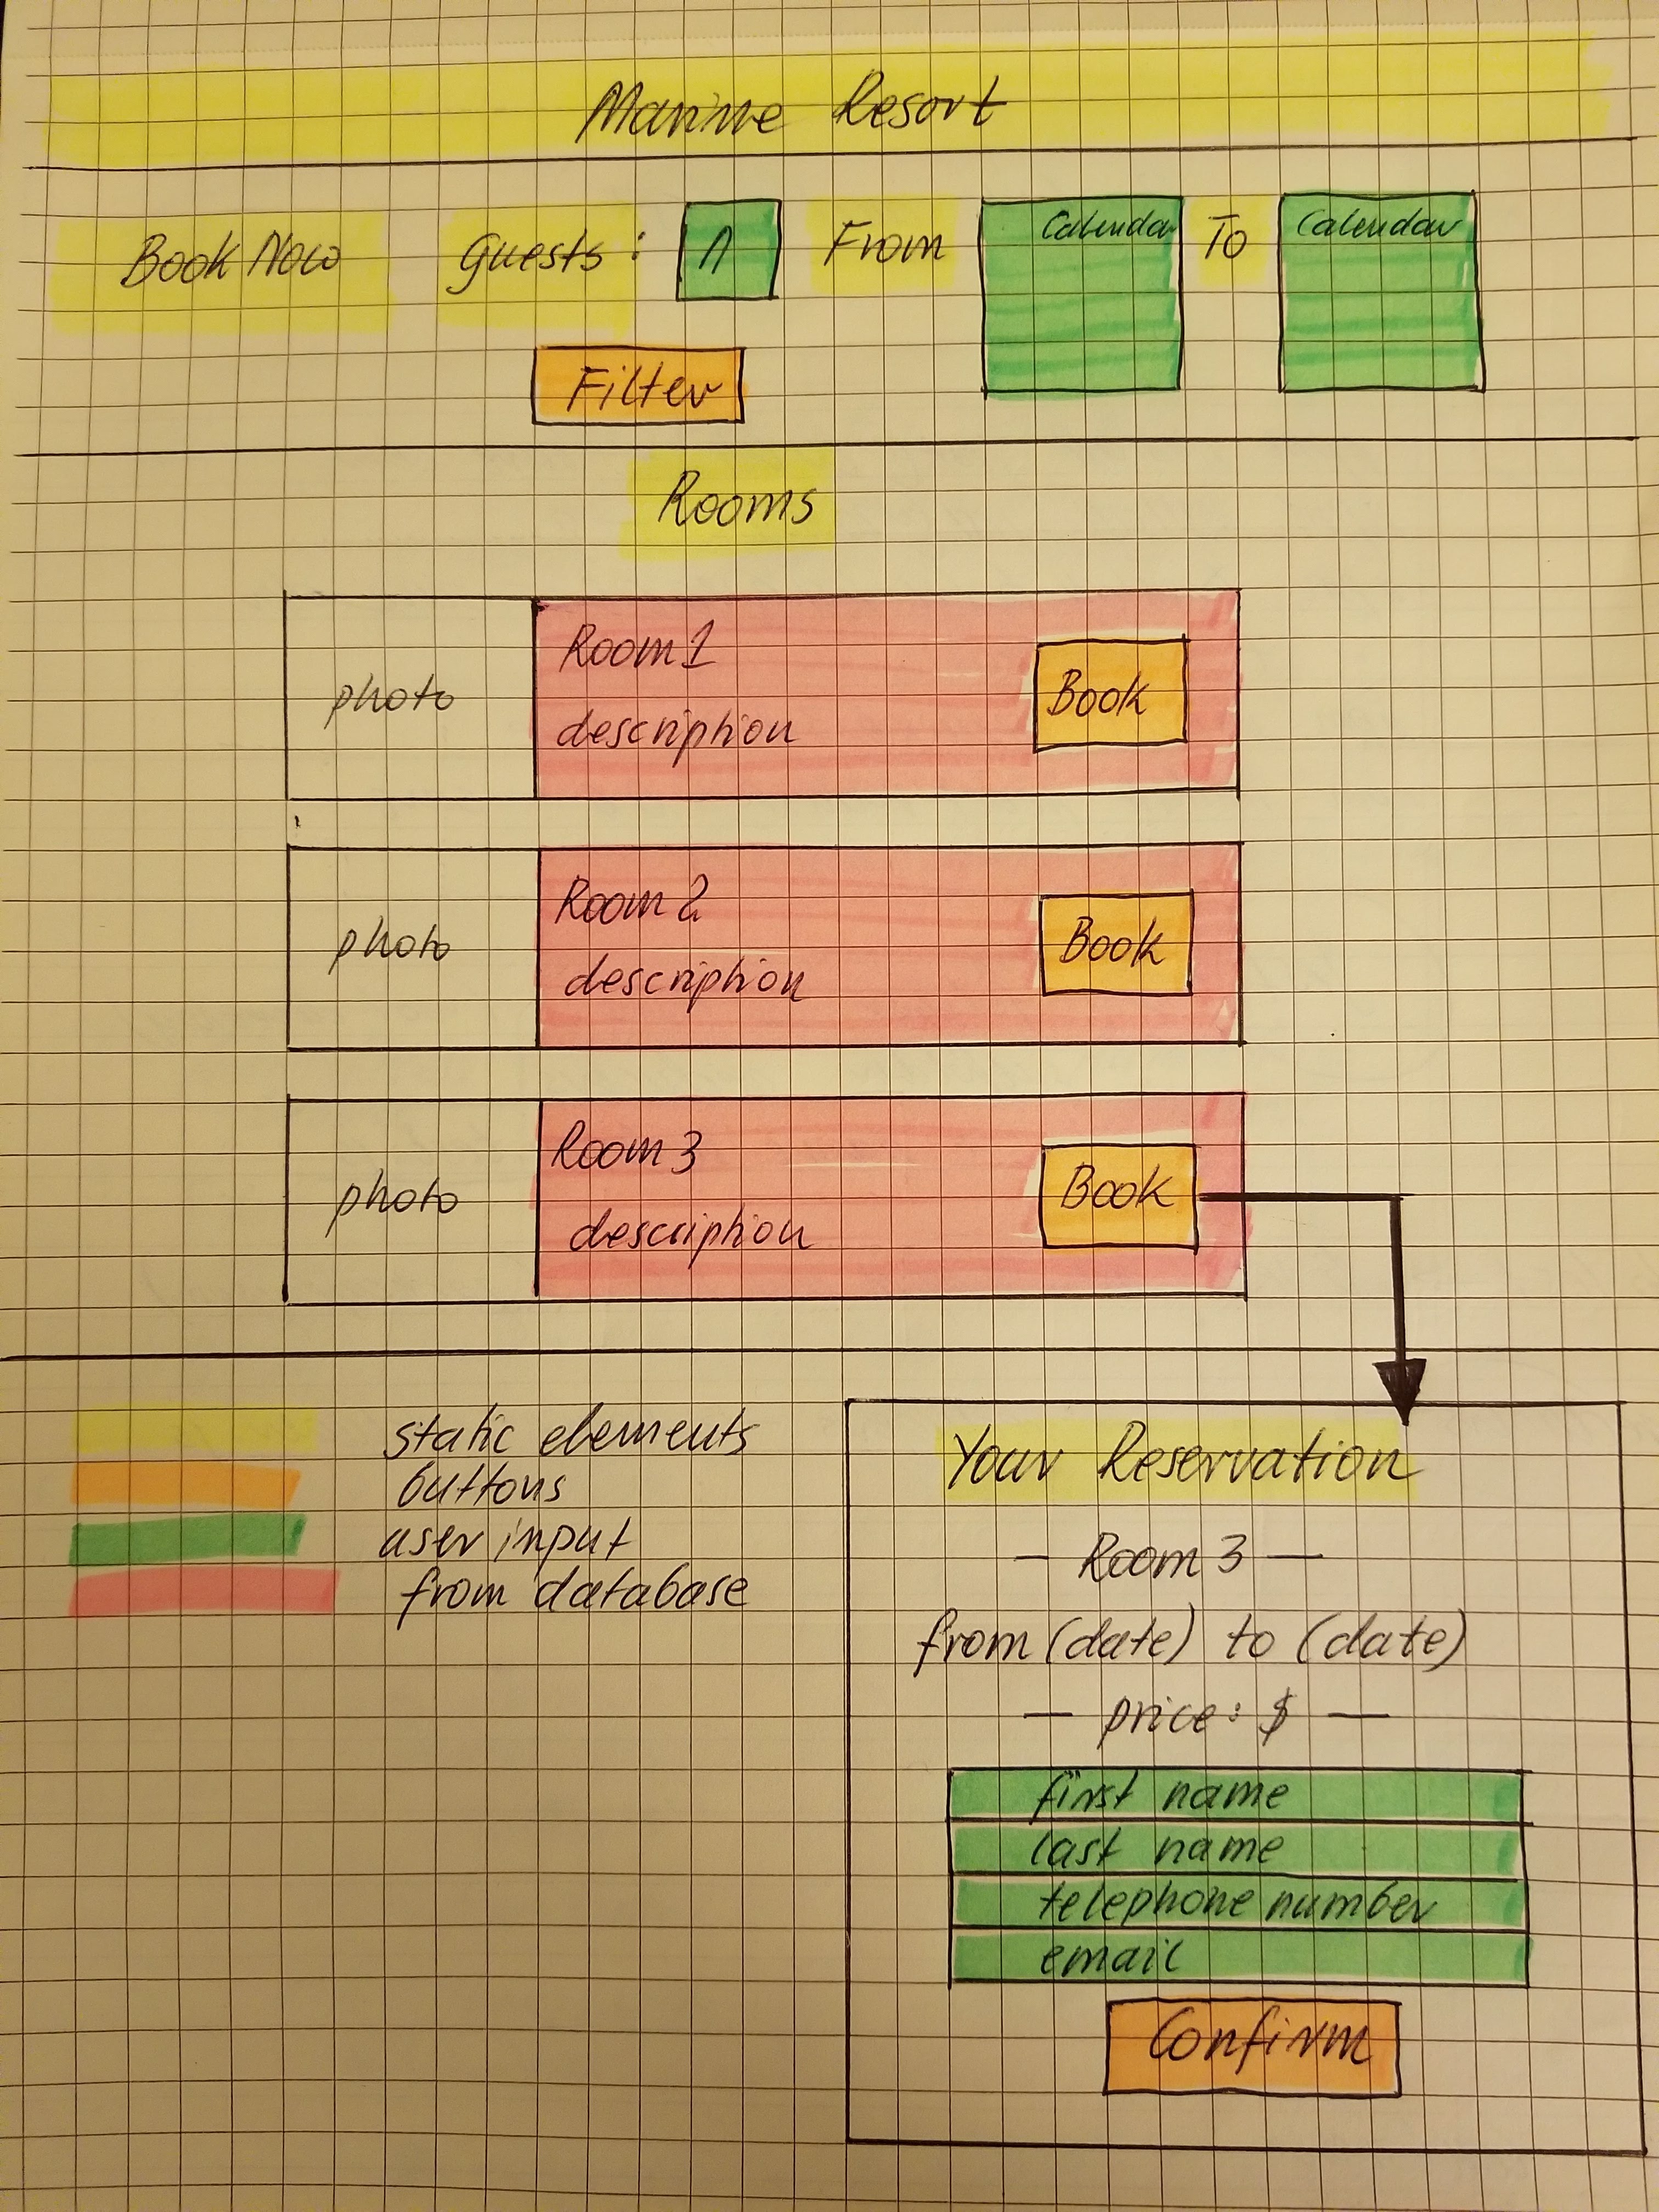 Marine Resort
Book Now Guests: n From Calendar To Calendar
Filter
Rooms
photo
Room 1
description
Book
photo
Room 2
description
Book
photo
Room 3
description
Book
static elements
buttons
user input
from database
Your Reservation
— Room 3 —
from (date) to (date)
— price: $ —
first name
last name
telephone number
email
Confirm